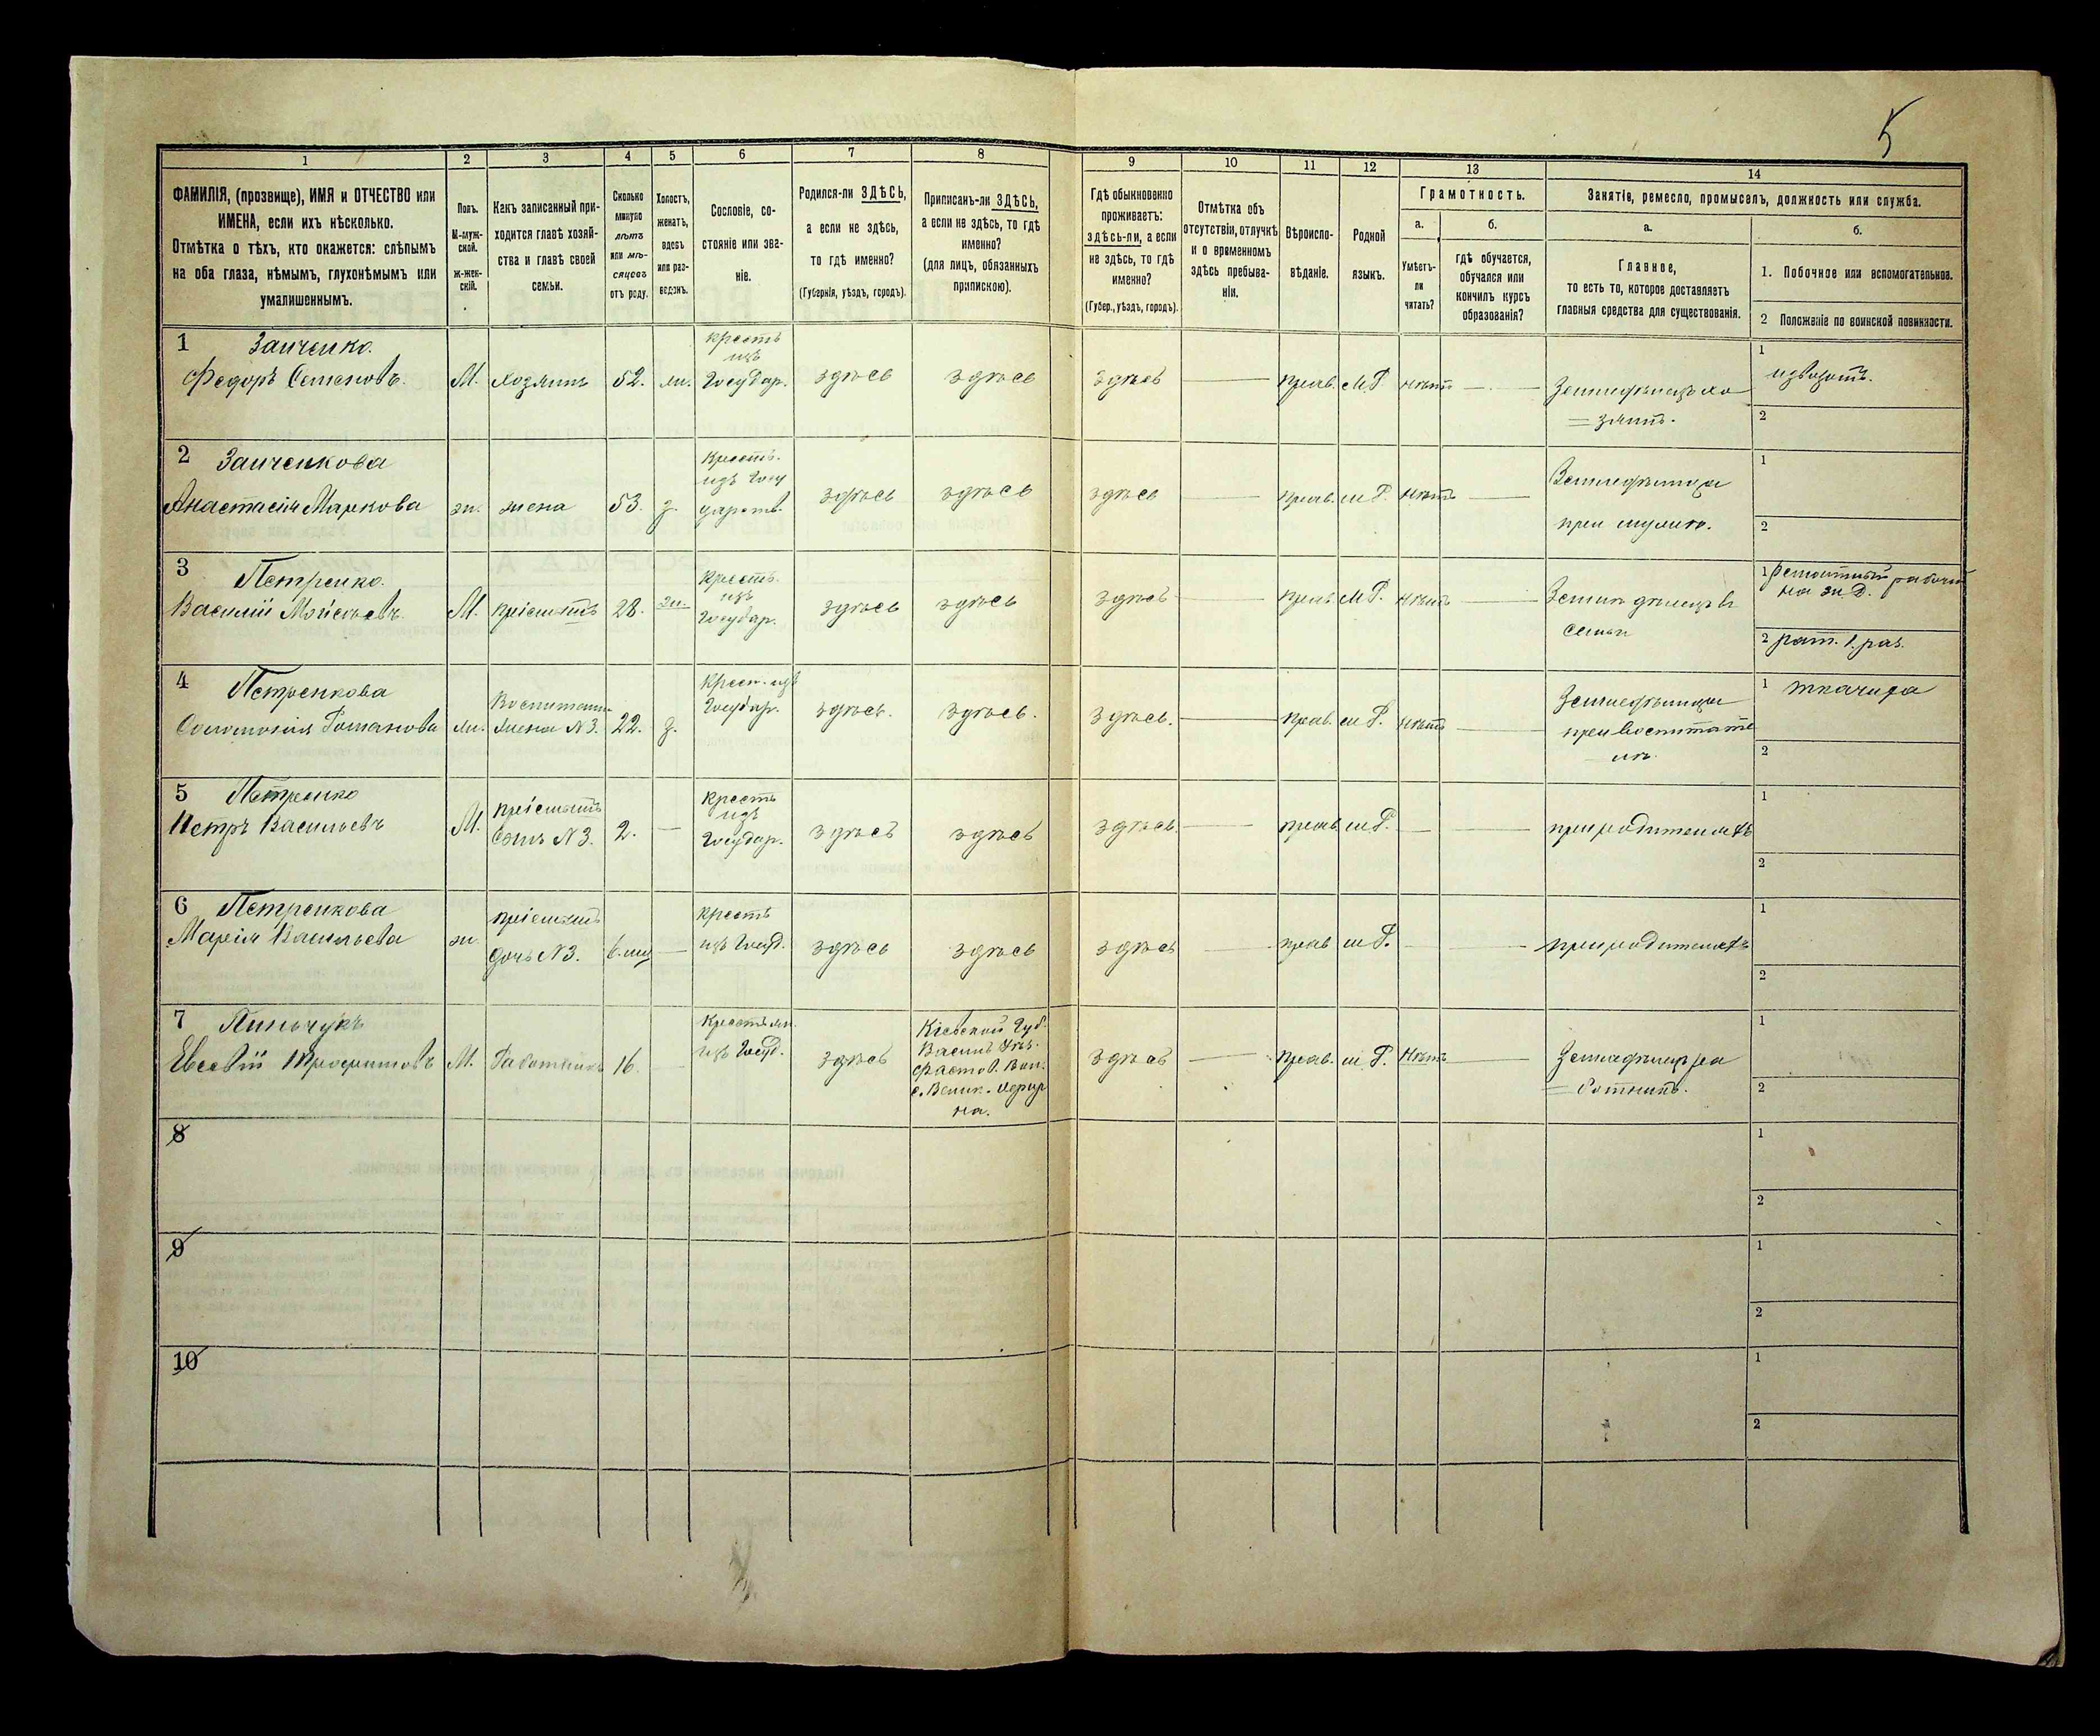 5
1
2
3
4
5
6
7
8
9
10
11
12
13
14
ФАМИЛІЯ, (прозвище), ИМЯ и ОТЧЕСТВО или
ИМЕНА, если ихъ нѣсколько.
Отмѣтка о тѣхъ, кто окажется: слѣпымъ
на оба глаза, нѣмымъ, глухонѣмымъ или
умалишеннымъ.
Полъ.
М-муж-
ской.
ж-жен-
скій.
Какъ записанный при-
ходится главѣ хозяй-
ства и главѣ своей
семьи.
Сколько
минуло
лѣтъ
или мѣ-
сяцевъ
отъ роду.
Холостъ,
женатъ,
вдовъ
или раз-
веденъ.
Сословіе, со-
стояніе или зва-
ніе.
Родился-ли ЗДѢСЬ,
а если не здѣсь,
то гдѣ именно?
(Губернія, уѣздъ, городъ).
Приписанъ-ли ЗДѢСЬ,
а если не здѣсь, то гдѣ
именно?
(для лицъ, обязанныхъ
припискою).
Гдѣ обыкновенно
проживаетъ:
здѣсь-ли, а если
не здѣсь, то гдѣ
именно?
(Губер., уѣздъ, городъ).
Отмѣтка объ
отсутствіи, отлучкѣ
и о временномъ
здѣсь пребыва-
ніи.
Вѣроиспо-
вѣданіе.
Родной
языкъ.
Грамотность.
а.
Умѣетъ-
ли
читать?
б.
гдѣ обучается,
обучался или
кончилъ курсъ
образованія?
Занятіе, ремесло, промыселъ, должность или служба.
а.
Главное,
то есть то, которое доставляетъ
главныя средства для существованія.
б.
1. Побочное или вспомогательное.
2 Положеніе по воинской повинности.
1 Заиченко.
Федоръ Семеновъ.
М.
хозяинъ
52.
жи.
крестъ
изъ
Государ.
здѣсь
здѣсь
здѣсь
прав.
М Р.
нѣтъ
Земледѣлецъ хо
=зяинъ.
1
извозомъ.
2
2 Заиченкова
Анастасія Маркова
жи.
жена
53.
з.
Крестъ.
изъ Госу
дарств.
здѣсь
здѣсь
здѣсь
прав.
м Р.
нѣтъ
Земледѣлица
при мужѣ.
1
2
3 Петренко.
Василій Мойсѣевъ.
М.
пріемышъ
28.
жи.
Крестъ.
изъ
Государ.
здѣсь
здѣсь
здѣсь
прав.
М Р.
нѣтъ
Земледѣлецъ въ
семьи
1 Ремонтный рабочій
на ж. Д.
2 рат. 1. раз.
4 Петренкова
Соломонія Романова
жи.
Воспитанн.
жена N 3.
22.
з.
Крест. изъ
Государ.
здѣсь.
здѣсь.
здѣсь.
прав.
м Р.
нѣтъ
Земледѣлица
при воспитате
лѣ.
1 ткачиха
2
5 Петренко
Петръ Васильевъ
М.
пріемышъ
сынъ N 3.
2.
Крестъ
изъ
Государ.
здѣсь
здѣсь
здѣсь
прав.
м Р.
при родителяхъ
1
2
6 Петренкова
Марія Васильева
жи.
пріемышъ
дочь N 3.
6. мц
крестъ
изъ Госуд.
здѣсь
здѣсь
здѣсь
прав
м Р.
при родителяхъ
1
2
7 Линьчукъ
Евсевій Трофимовъ
М.
Работникъ
16.
Крестьян.
изъ Госуд.
здѣсь
Кіевской Губ.
Васильк. Уѣз.
Фастов. Вол.
с. Велик.
здѣсь
прав.
м Р.
Нѣтъ
Земледѣлецъ ра
=ботникъ.
1
2
8
1
2
9
1
2
10
1
2